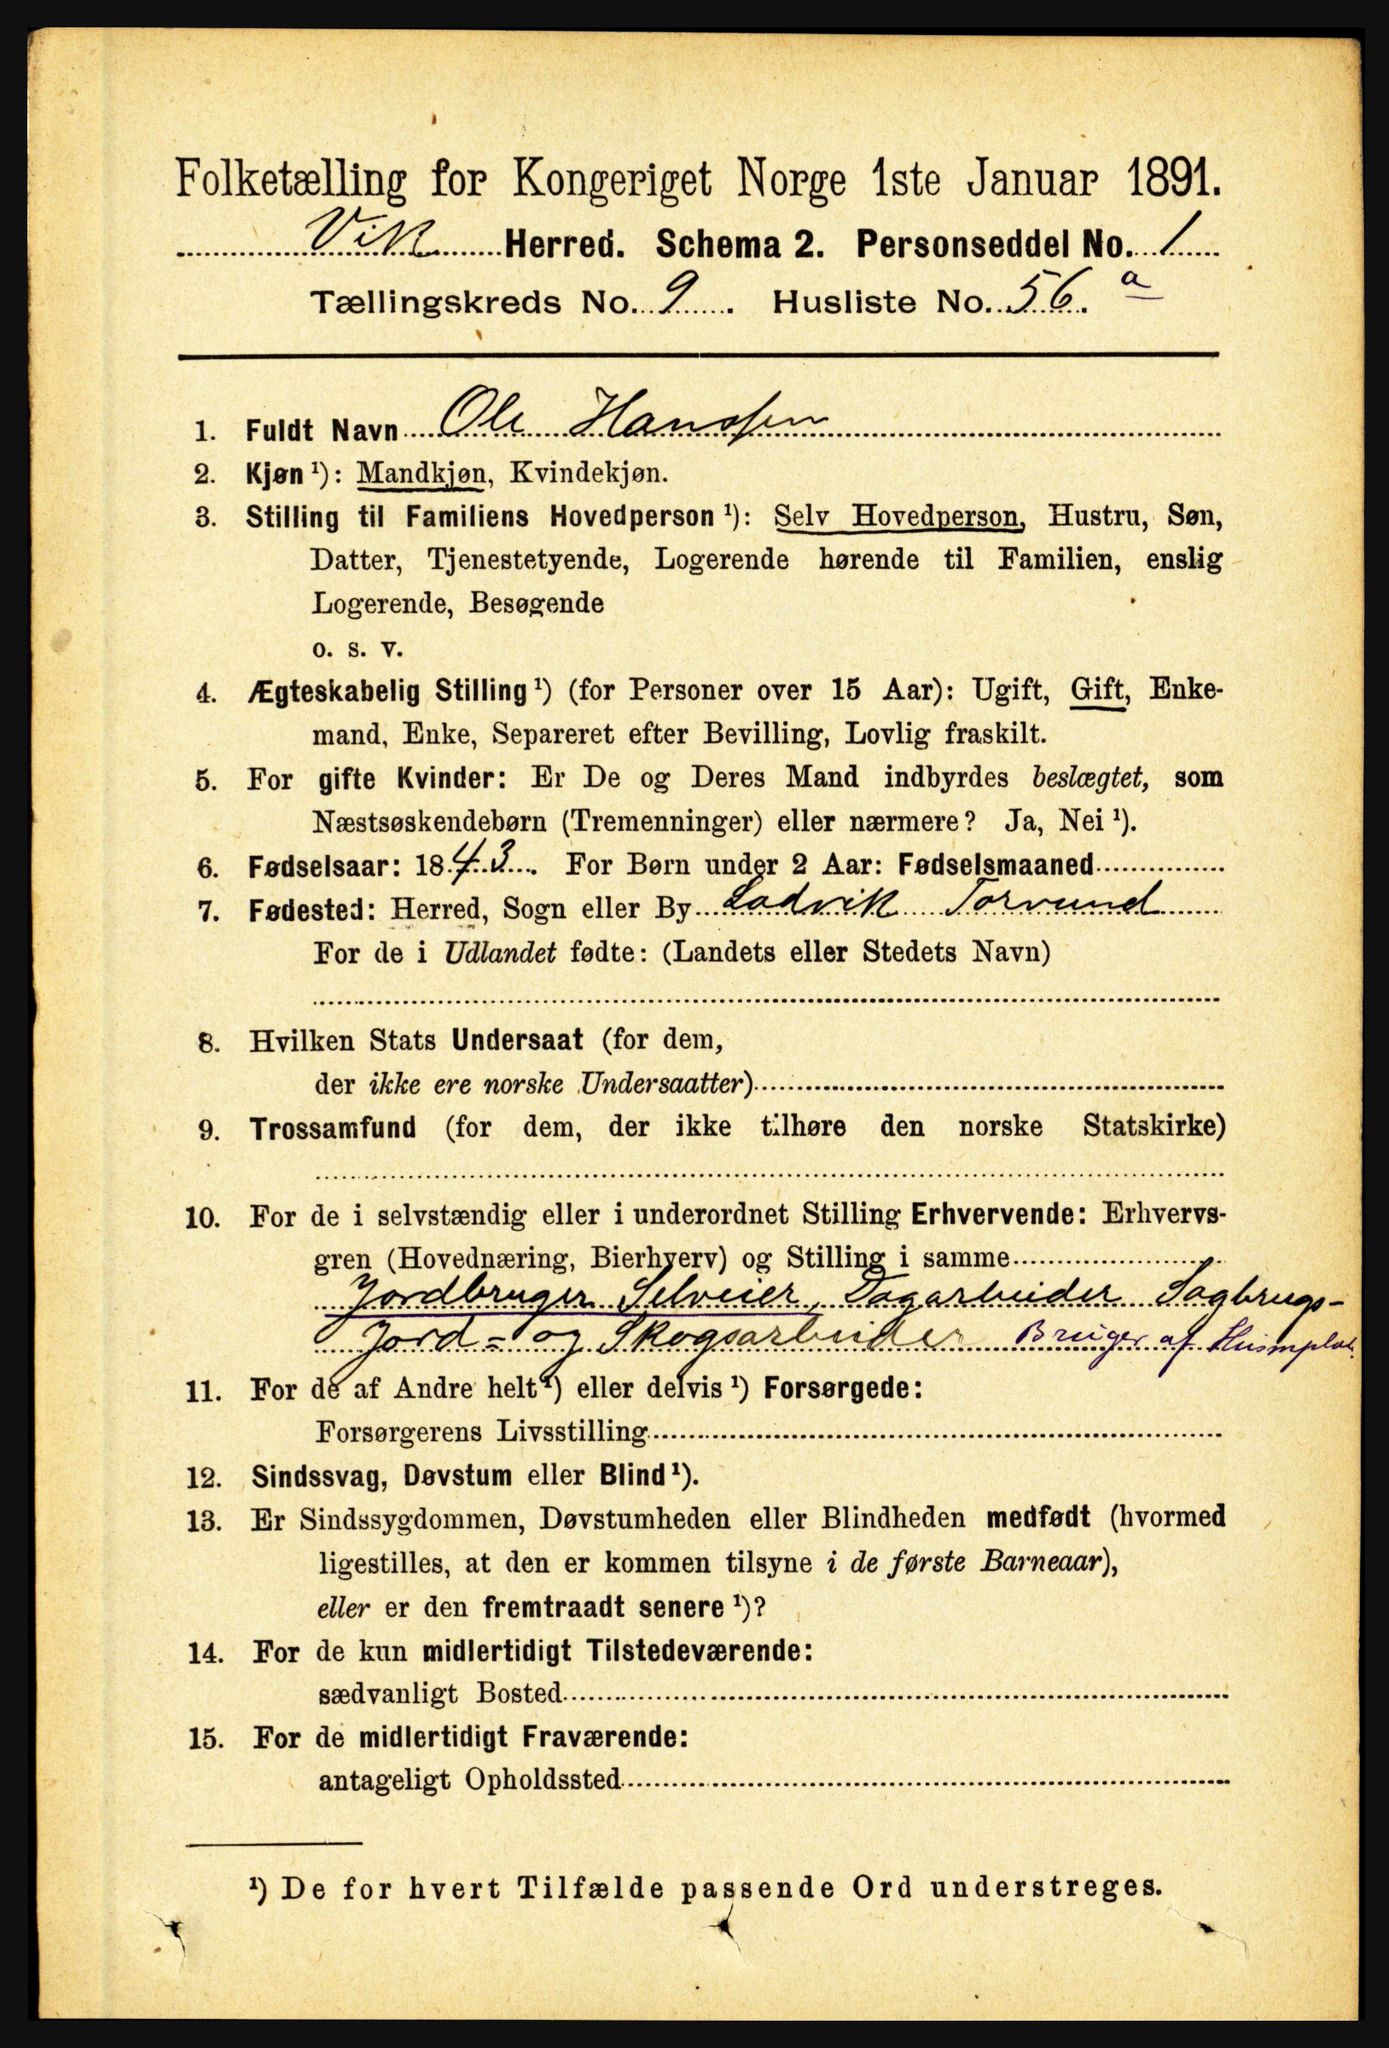 Folketælling for Kongeriget Norge 1ste Januar 1891.
Vik Herred. Schema 2. Personseddel No. 1
Tællingskreds No. 9. Husliste No. 56. a
1. Fuldt Navn Ole Hanssen
2. Kjøn ¹): Mandkjøn, Kvindekjøn.
3. Stilling til Familiens Hovedperson ¹): Selv Hovedperson, Hustru, Søn,
Datter, Tjenestetyende, Logerende hørende til Familien, enslig
Logerende, Besøgende
o. s. v.
4. Ægteskabelig Stilling ¹) (for Personer over 15 Aar): Ugift, Gift, Enke-
mand, Enke, Separeret efter Bevilling, Lovlig fraskilt.
5. For gifte Kvinder: Er De og Deres Mand indbyrdes beslægtet, som
Næstsøskendebørn (Tremenninger) eller nærmere? Ja, Nei ¹).
6. Fødselsaar: 1843. For Børn under 2 Aar: Fødselsmaaned
7. Fødested: Herred, Sogn eller By Ladvik Torvund
For de i Udlandet fødte: (Landets eller Stedets Navn)
8. Hvilken Stats Undersaat (for dem,
der ikke ere norske Undersaatter)
9. Trossamfund (for dem, der ikke tilhøre den norske Statskirke)
10. For de i selvstændig eller i underordnet Stilling Erhvervende: Erhvervs-
gren (Hovednæring, Bierhverv) og Stilling i samme
Jordbruger Selveier, Dagarbeider Sagbrugs-
Jord- og Skogsarbeider Bruger af Husmplads
11. For de af Andre helt ¹) eller delvis ¹) Forsørgede:
Forsørgerens Livsstilling
12. Sindssvag, Døvstum eller Blind ¹).
13. Er Sindssygdommen, Døvstumheden eller Blindheden medfødt (hvormed
ligestilles, at den er kommen tilsyne i de første Barneaar),
eller er den fremtraadt senere ¹)?
14. For de kun midlertidigt Tilstedeværende:
sædvanligt Bosted
15. For de midlertidigt Fraværende:
antageligt Opholdssted
¹) De for hvert Tilfælde passende Ord understreges.